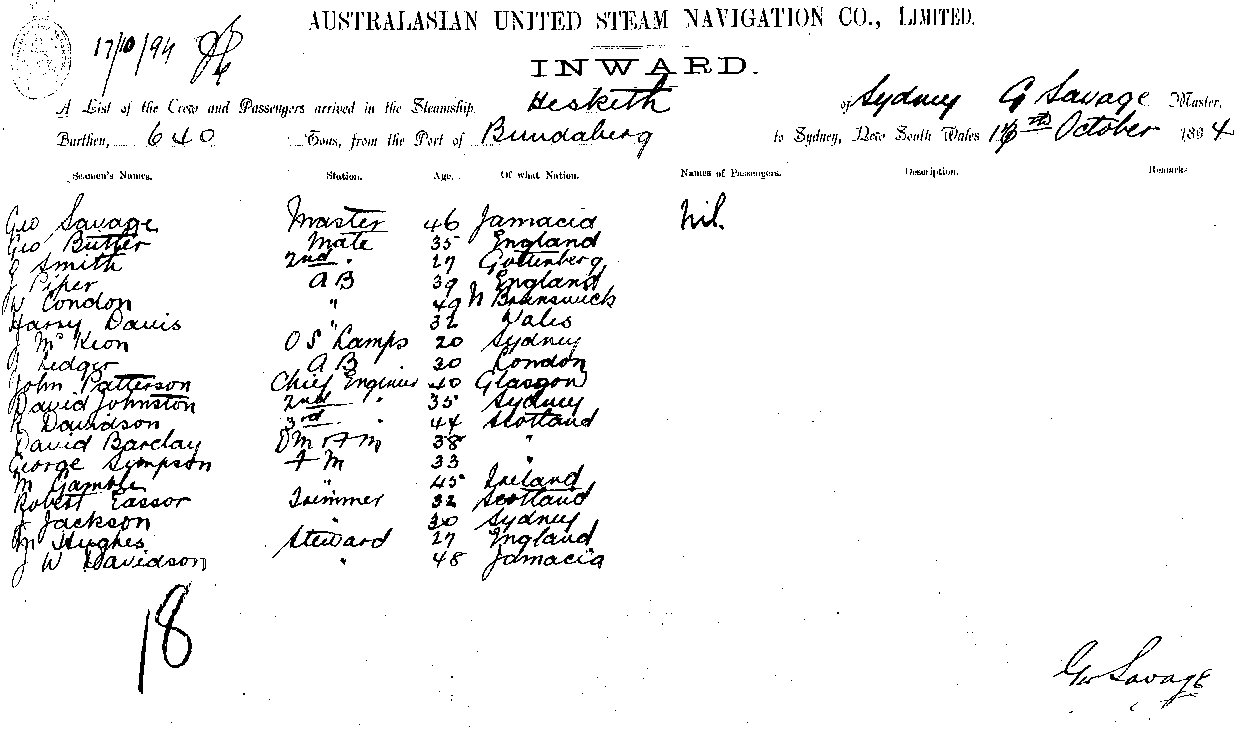 AUSTRALASIAN UNITED STEAM NAVIGATION CO., LIMITED.
17/10/94
INWARD.
A List of the Crew and Passengers arrived in the Steamship Hesketh of Sydney G Savage Master,
Burthen, 640 Tons, from the Port of Bundaberg to Sydney, New South Wales October 1894
Seamen's Names. Station. Age. Of what Nation. Names of Passengers. Description. Remarks
Geo Savage Master 46 Jamacia Nil.
Geo Butter Mate 35 England
J Smith 2nd " 27 Gottenberg
J Piper A B 39 England
W Condon " 49 N Brunswick
Harry Davis " 32 Wales
J McKeon O S Lamps 20 Sydney
J Ledger A B 30 London
John Patterson Chief Enginier 40 Glasgow
David Johnston 2nd " 35 Sydney
R Davidson 3rd " 44 Scotland
David Barclay D m & F m 38 "
George Sympson F M 33 "
M Gamble " 45 Ireland
Robert Eassor Trimmer 32 Scotland
J Jackson " 30 Sydney
M Hughes Steward 27 England
J W Davidson " 48 Jamacia
18
Geo Savage